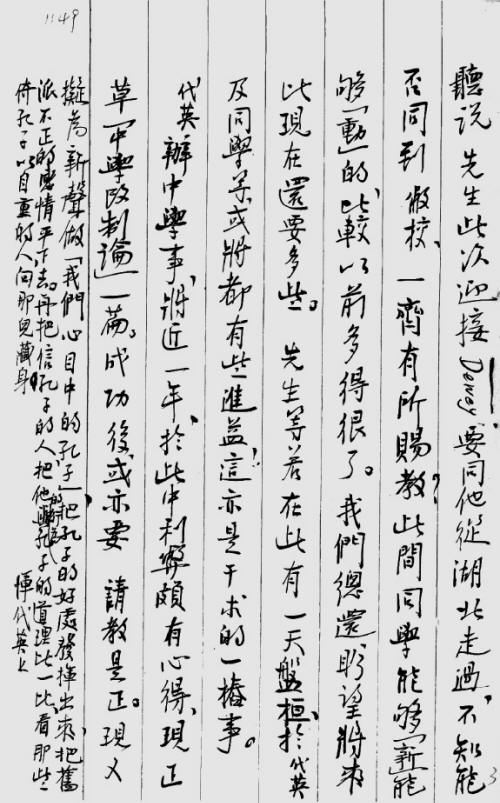 1149
聽说 先生此次迎接Dewey，要同他從湖北走過，不知能
否同到敝校，一齊有所賜教？此間同學能够「新」能
够「動」的，比較以前多得很了。我們總還盼望將來
比現在還要多些。 先生等若在此有一天盤桓，於代英
及同學等，或將都有些進益，這亦是千求的一樁事。
代英辦中學事，將近一年，於此中利弊頗有心得，現正
草「中學改制論」一篇。成功後，或亦要 請教是正。現又
擬為新聲做「我們心目中的孔子」把孔子的好處發揮出來，把舊
派不正的感情平下去。再把信孔子的人把他的與孔子的道理比一比，看那些
侍孔子以自重的人向那兒藏身。 惲代英上
3